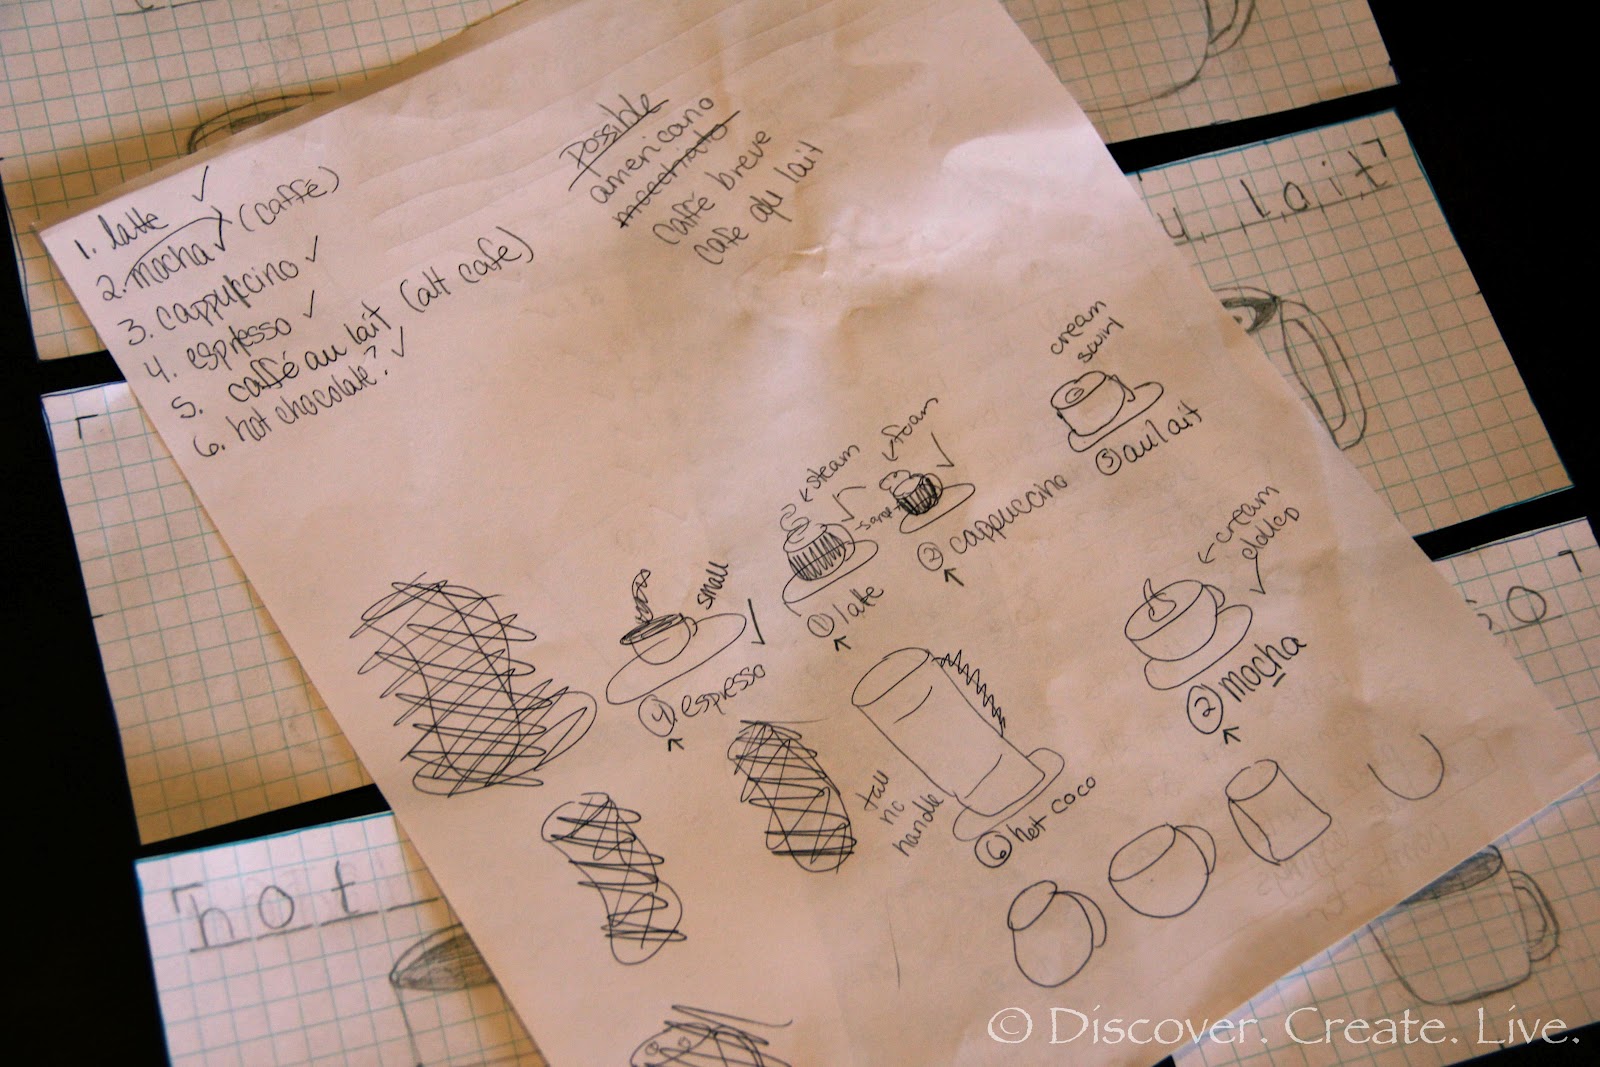 1. latte ✓
2. mocha ✓ (caffé)
3. cappuccino ✓
4. espresso ✓
5. caffé au lait (alt cafe)
6. hot chocolate? ✓
possible
americano
macchiato
caffé breve
cafe au lait
cream
swirl
⑤ au lait
foam
✓
steam
✓
③ cappuccino
① latte
small
✓
④ espresso
cream
dolled
✓
② mocha
tall
no
handle
⑥ hot coco
u lait
hot
o
© Discover. Create. Live.